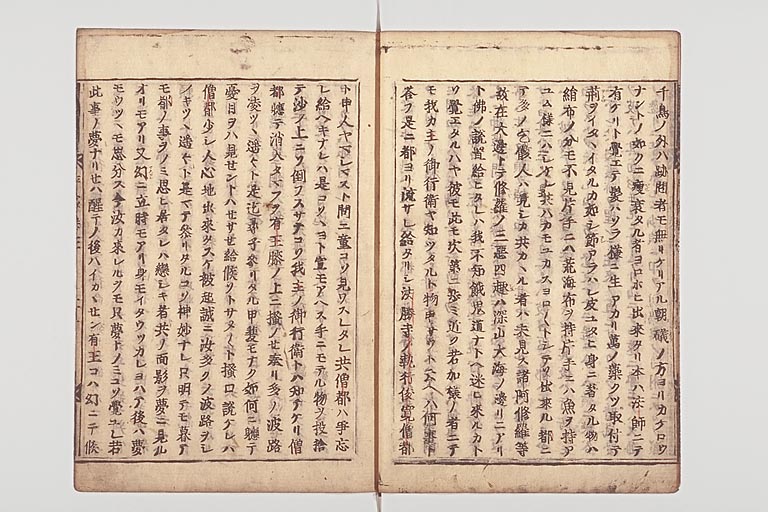 千鳥ノ外ハ跡問者モ無リケリアル朝礒ノ方ヨリカケロウ
ナントノ如クニ痩衰タル者ヨロホヒ出來タリ本ハ法師ニテ
有ケリト覺エテ髪ハソラ様ニ生アカリ萬ノ藻クツ取付テ
荊ヲイタヽイタルカ如シ節アラハレ皮ユタヒ身ニ着タル物ハ
絹布ノ分モ不見片手ニハ荒海布ヲ持片手ニハ魚ヲ持ア
ユム様ニハシケレ共ハカモユカスヨロ〱トシテソ出來ル都ニ
テ多ノ乞骸人ハ見シカ共カヽル者ハ未見ス諸阿修羅等
故在大海邊トテ修羅ノ三悪四趣ハ深山大海ノ邊リニアリ
ト佛ノ説置給ヒタレハ我不知餓鬼道ナトヘ迷ヒ來ルカト
ソ覺エタルハヤ彼モ此モ次第ニ歩ミ近ツ若加様ノ者ニテ
モ我カ主ノ御行衛ヤ知ツタルト物申サウト云ヘハ何事ト
答フ是ニ都ヨリ流サレ給タリシ法勝寺ノ執行俊寛僧都
ト申人ヤマシマスト問ニ童コソ見ワスレタレ共僧都ハ爭忘
レ給ヘキナレハ是コソヘヨト宣モアヘス手ニモテル物ヲ投捨
テ沙ノ上ニソ倒フスサテコソ我主ノ御行衛トハ知テケリ僧
都軈テ消入タマフヲ有王膝ノ上ニ掻ノセ奉リ多ノ波路
ヲ凌ツヽ遥々ト是迄尋子參リタル甲斐モナク如何ニ軈テ
憂目ヲハ見セントハセサセ給候ソトサメ〱ト掻口説ケレハ
僧都少シ人心地出來タスケ被起誠ニ汝多クノ波路ヲシ
ノキツヽ遥々ト是マテ參リタルコソ神妙ナレ只明テモ暮テ
モ都ノ事ヲノミ思ヒ居タレハ戀シキ者共ノ面影ヲ夢ニ見ル
オリモアリ又幻ニ立時モアリ身モイタウツカレヨハテ後ハ夢
モウツヽモ思分ス今汝カ來レルヲモ只夢トノミコソ覺ユレ若
此事ノ夢ナリセハ醒テノ後ハイカヽセン有王コハ幻ニテ候